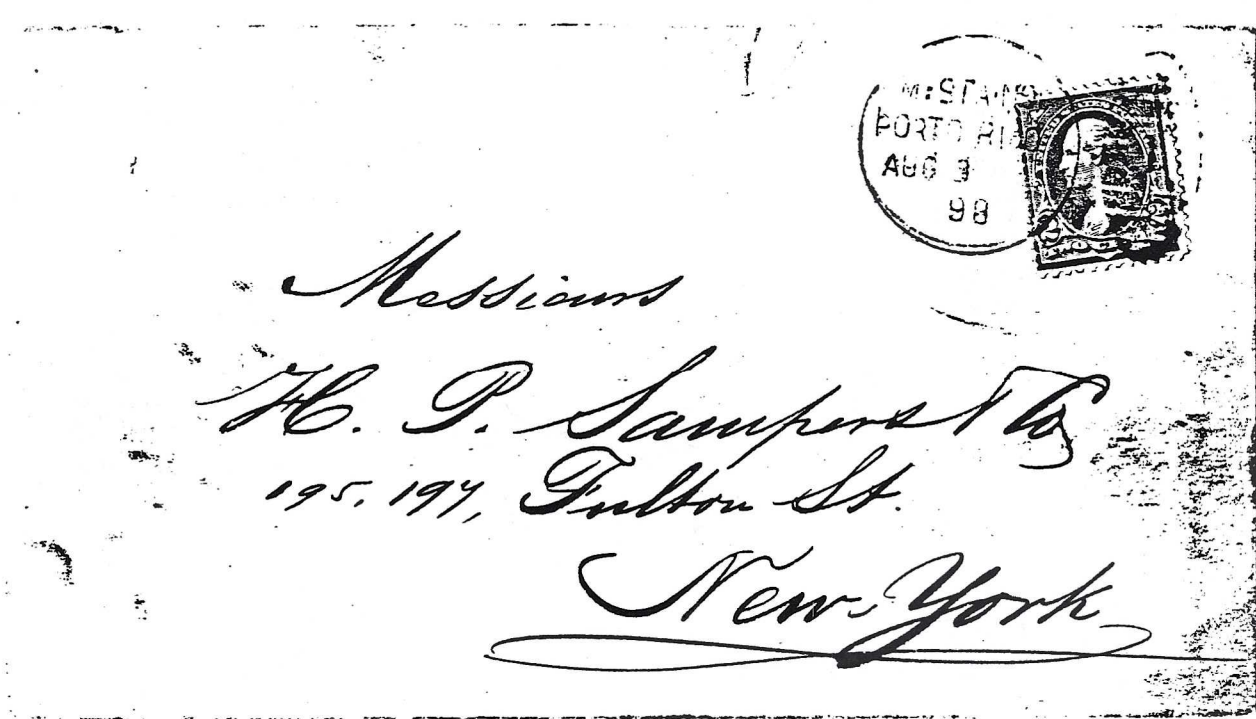 MIL. STA. NO
PORTO RICO
AUG 3
98
Messieurs
H. P. Sampers & Co
195. 197, Fulton St.
New-York